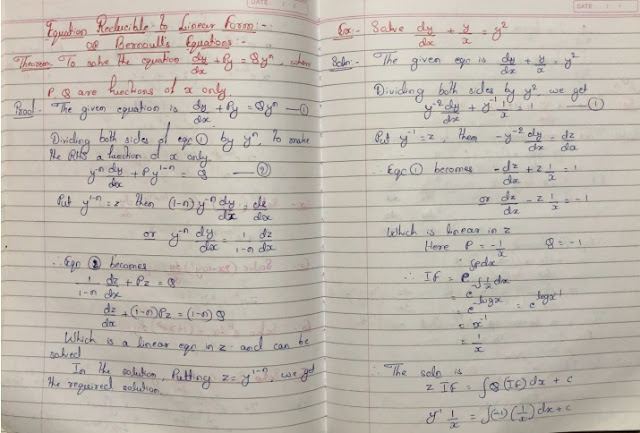 Equation Reducible to Linear Form:-
or Bernoulli's Equations:-
Theorem To solve the equation dy/dx + Py = Qyⁿ, where
P, Q are functions of x only.
Proof:- The given equation is dy/dx + Py = Qyⁿ —①
Dividing both sides of eqn ① by yⁿ, to make
the RHS a function of x only.
y⁻ⁿ dy/dx + P y¹⁻ⁿ = Q —②
Put y¹⁻ⁿ = z, then (1-n) y⁻ⁿ dy/dx = dz/dx
or y⁻ⁿ dy/dx = 1/(1-n) dz/dx
∴ Eqn ② becomes
1/(1-n) dz/dx + Pz = Q
dz/dx + (1-n)Pz = (1-n)Q
Which is a linear eqn in z and can be
solved
In the solution, Putting z = y¹⁻ⁿ, we get
the required solution.
DATE
Ex:- Solve dy/dx + y/x = y²
Soln:- The given eqn is dy/dx + y/x = y²
Dividing both sides by y², we get
y⁻² dy/dx + y⁻¹ 1/x = 1 —①
Put y⁻¹ = z, then -y⁻² dy/dx = dz/dx
∴ Eqn ① becomes -dz/dx + z 1/x = 1
or dz/dx - z 1/x = -1
Which is linear in z
Here P = -1/x Q = -1
∴ IF = e^∫Pdx
= e^-∫1/x dx
= e^-logx = e^logx⁻¹
= x⁻¹
= 1/x
∴ The soln is
z IF = ∫Q (IF) dx + c
y⁻¹ 1/x = ∫(-1)(1/x) dx + c